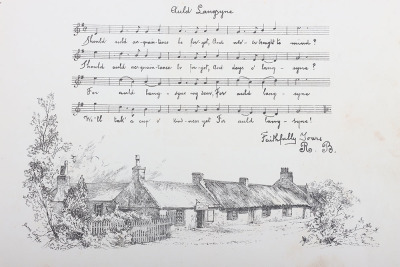 Auld Langsyne
Should auld acquaintance be forgot, And nev-er brought to mind?
Should auld acquaintance be forgot, And days o' lang-syne?
For auld lang-syne my dear, For auld lang-syne
We'll tak' a cup o' kind-ness yet For auld lang-syne!
Faithfully Yours
R. B.